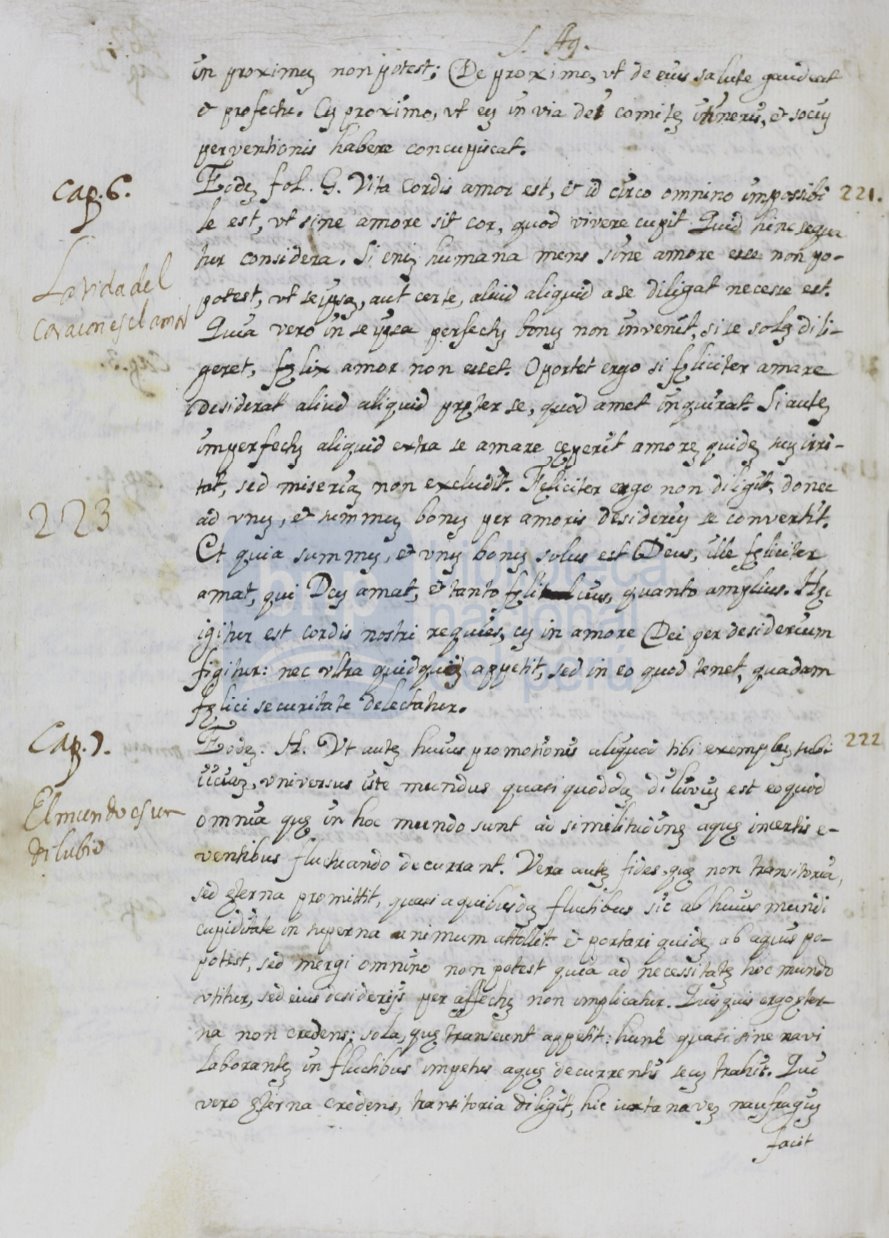 S. Ag.
in proximuȝ non potest; De proximo, vt de eius salute gaudeat
et profectu. Cuȝ proximo, vt euȝ in via dei comiteȝ itineris, et sociuȝ
perventionis habere concupiscat.
Cap. 6.
Eodeȝ fol. G. Vita cordis amor est, et id circo omnino impossibi
221.
le est, vt sine amore sit cor, quod vivere cupit. Quid hinc sequa
tur considera. Si eniȝ humana mens sine amore esse non po-
La vida del
potest, vt se ipsaȝ, aut certe, aliud aliquid a se diligat necesse est.
coraçon es el amor
Quia vero in se ipsa perfectuȝ bonuȝ non invenit, si se solaȝ dili-
geret, fęlix amor non esset. Oportet ergo si fęliciter amare
desiderat aliud aliquid pręter se, quod amet inquirat. Si auteȝ
imperfectuȝ aliquid extra se amare ceperit amoreȝ quideȝ suuȝ irri-
tat, sed miseriaȝ non excludit. Fęliciter ergo non diligit, donec
223
ad vnuȝ, et summuȝ bonuȝ per amoris desideriuȝ se convertit.
Et quia summuȝ, et vnuȝ bonuȝ solus est Deus, ille fęliciter
amat, qui Deuȝ amat, et tanto fęlicius, quanto amplius. Hęc
igitur est cordis nostri requies, cuȝ in amore Dei per desiderium
figitur: nec vltra quidquid appetit, sed in eo quod tenet, quadam
fęlici securitate delectatur.
Cap. 7.
Eodeȝ. H. Vt auteȝ huius promotionis aliquod tibi exempluȝ subi
222
iiciaȝ, vniversus iste mundus quasi quoddaȝ diluviuȝ est eo quod
El mundo es un
omnia quę in hoc mundo sunt ad similitudineȝ aquę incertis e-
dilubio
ventibus fluctuando decurrant. Vera auteȝ fides, quę non transitoria,
sed ęterna promittit, quasi a quibusdaȝ fluctibus sic ab huius mundi
cupiditate in superna animum attollit. et portari quideȝ ab aquis po-
potest, sed mergi omnino non potest quia ad necessitateȝ hoc mundo
vtitur, sed eius desiderijs per affectuȝ non implicatur. Quisquis ergo ęter-
na non credens; sola, quę transeunt appetit: hunc quasi sine navi
laboranteȝ in fluctibus impetus aquę decurrentis secuȝ trahit. Qui
vero ęterna credens, transitoria diligit, hic iuxta naveȝ naufragiuȝ
facit